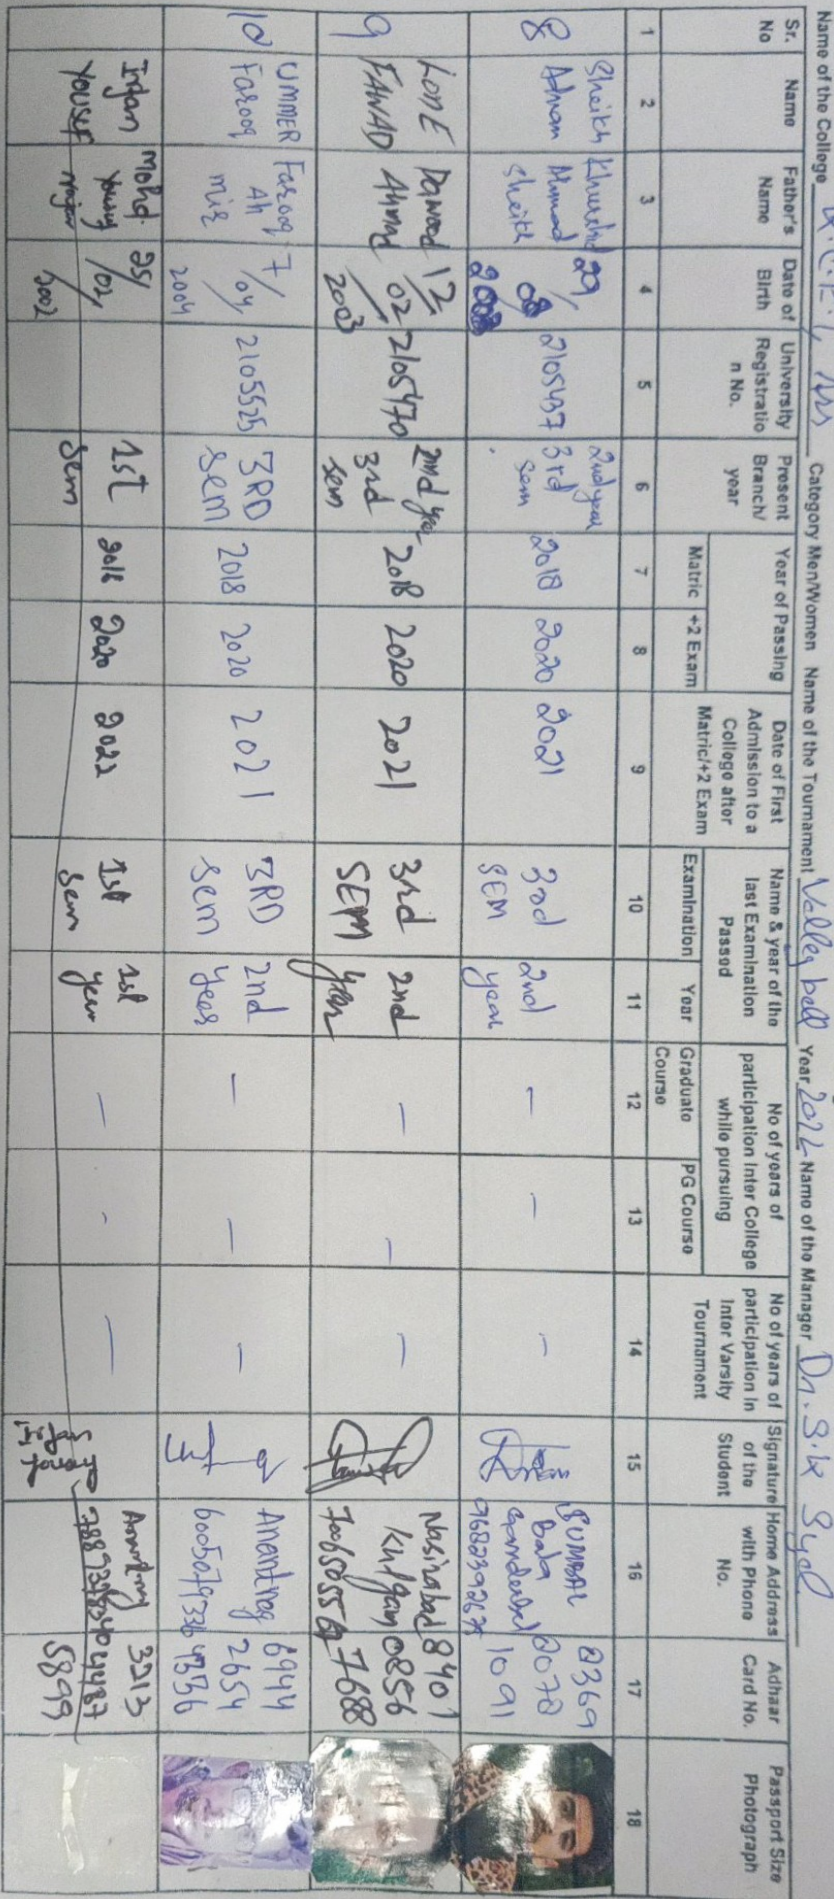 Name of the College
Category Men/Women Name of the Tournament Valley ball Year 2022 Name of the Manager Dr. S.K Syal
Sr. No
Name
Father's Name
Date of Birth
University Registratio n No.
Present Branch/ year
Year of Passing
Matric
+2 Exam
Date of First Admission to a College after Matric/+2 Exam
Name & year of the last Examination Passed
Examination
Year
No of years of participation Inter College while pursuing
Graduate Course
PG Course
No of years of participation in Inter Varsity Tournament
Signature of the Student
Home Address with Phone No.
Adhaar Card No.
Passport Size Photograph
1 2 3 4 5 6 7 8 9 10 11 12 13 14 15 16 17 18
8
Sheikh Adnan
Khurshid Ahmad Sheikh
29/08/
2105437
2nd year 3rd sem
2018
2020
2021
3rd SEM
2nd year
—
—
—
SUMBAL Bala Ganderbal
0369 2078 1091
9
LONE FAWAD
Dawood Ahmad
12/02/2003
2105470
2nd year 3rd sem
2018
2020
2021
3rd SEM
2nd year
—
—
—
Nasirabad Kulgam
8401 0856 7688
10
UMMER Farooq
Farooq Ah mir
7/04/2004
2105525
3RD sem
2018
2020
2021
3RD sem
2nd year
—
—
—
Anantnag
6944 2654
Irfan Yousuf
Mohd. Yousuf Najar
25/02/2002
1st Sem
2018
2020
2022
1st Sem
1st year
—
-
—
3213
5899